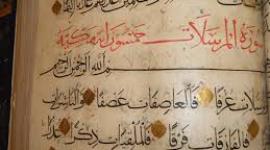 سورة المرسلات خمسون آية مكية
الله الرحمن الرحيم
عُرْفًا فَالْعَاصِفَاتِ عَصْفًا وَالنَّاشِرَاتِ
فَالْفَارِقَاتِ فَرْقًا فَالْمُلْقِيَاتِ ذِكْرًا عُذْرًا